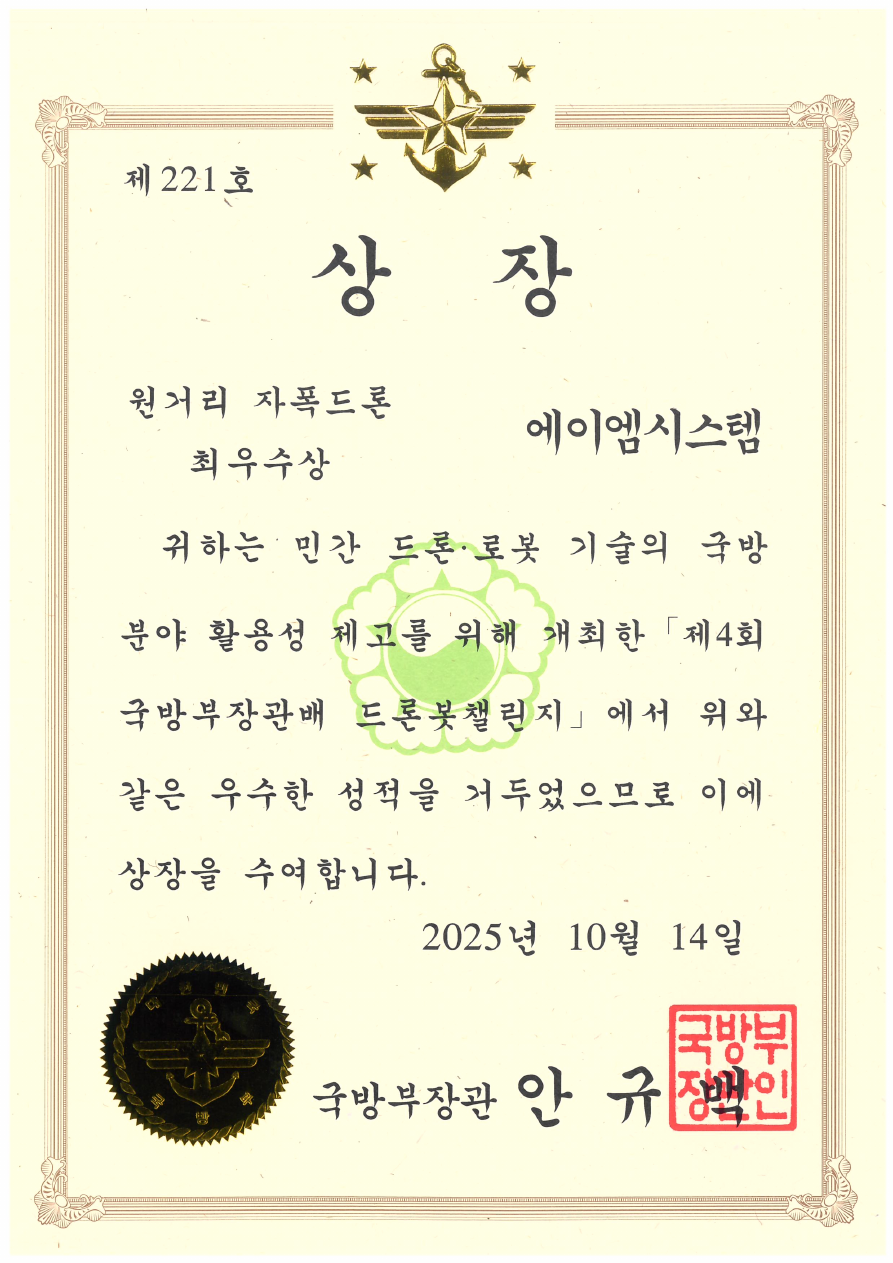 제 221 호
상 장
원거리 자폭드론
최우수상
에이엠시스템
귀하는 민간 드론·로봇 기술의 국방
분야 활용성 제고를 위해 개최한 「제4회
국방부장관배 드론봇챌린지」에서 위와
같은 우수한 성적을 거두었으므로 이에
상장을 수여합니다.
2025년 10월 14일
국방부장관 안 규 백
국방부
장관인
대한민국
국방부